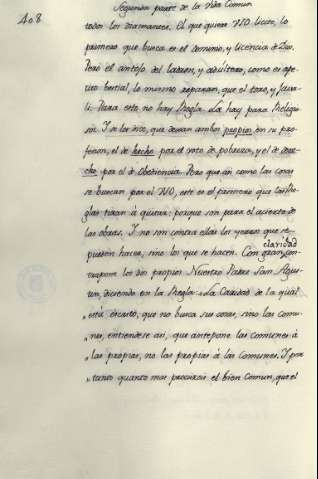 408
Segunda parte de la Vida Comun
todos los Diamantes. El que quiere VSO licito, lo
primero que busca es el dominio, y licencia de Dios.
Pero el antojo del ladron, y adultero, como es ape-
tito bestial, lo mismo reparan, que el toro, y
li. Para esto no hay Regla. La hay para Religio-
sos. I de los dos, que dexan ambos propios en su pro-
fesion, el de hecho por el voto de pobreza, y el de dere-
cho por el de Obediencia. Pero que aun como las cosas
se buscan por el VSO, este es el primero que las Re-
glas tiran à quitar: porque son para el acierto de
las obras. I no son contra ellas los yerros que se
pueden hacer, sino los que se hacen. Con gran claridad con-
trapone los dos propios Nuestro Padre San Agus-
tin, diciendo en la Regla: La Caridad de la qual
„ està escrito, que no busca sus cosas, sino las comu-
„ nes, entiendese asi, que antepone las comunes à
„ las propias, no las propias à las comunes. I por
„ tanto quanto mas procurais el bien Comun, que el